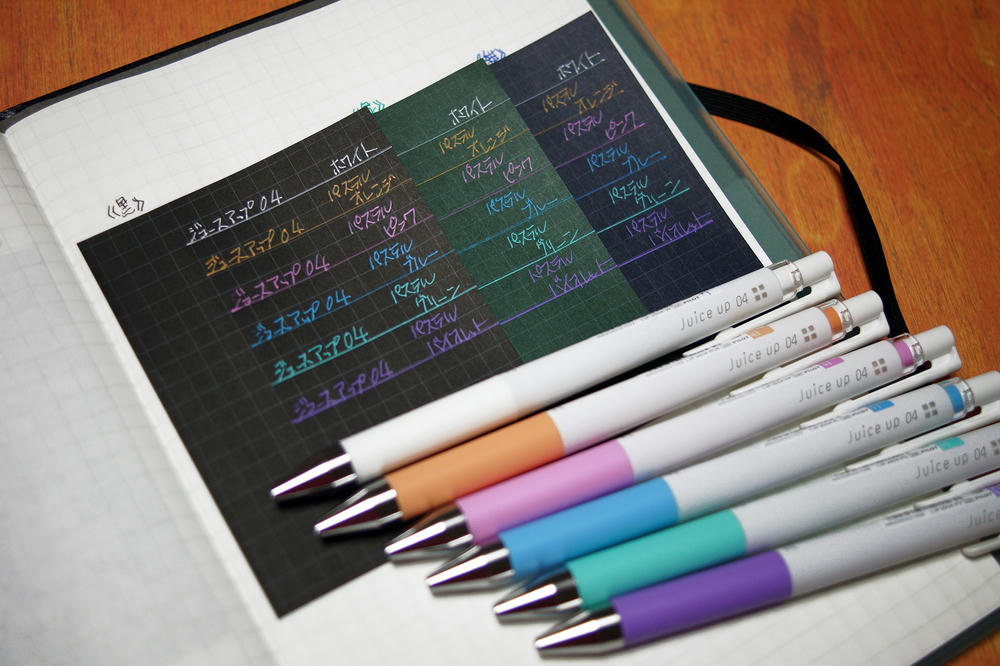 《黒》
ジュースアップ04 ホワイト ホワイト ホワイト
ジュースアップ04 パステル オレンジ パステル オレンジ パステル オレンジ
ジュースアップ04 パステル ピンク パステル ピンク パステル ピンク
ジュースアップ04 パステル ブルー パステル ブルー パステル ブルー
ジュースアップ04 パステル グリーン パステル グリーン パステル グリーン
ジュースアップ04 パステル バイオレット パステル バイオレット パステル バイオレット
Juice up 04
Juice up 04
Juice up 04
Juice up 04
Juice up 04
Juice up